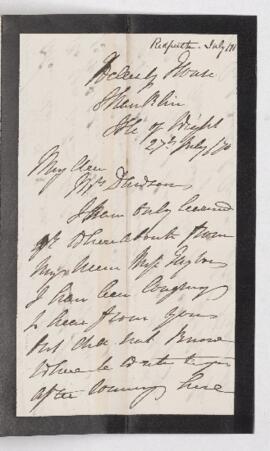 Redpath - July 1870
House
Shanklin
Isle of Wight
27th July/70
My dear
Mrs Davidson,
I have only learned
yr whereabouts from
Miss Taylor
I have been longing
to hear from you
but did not know
where to write to you
after coming here